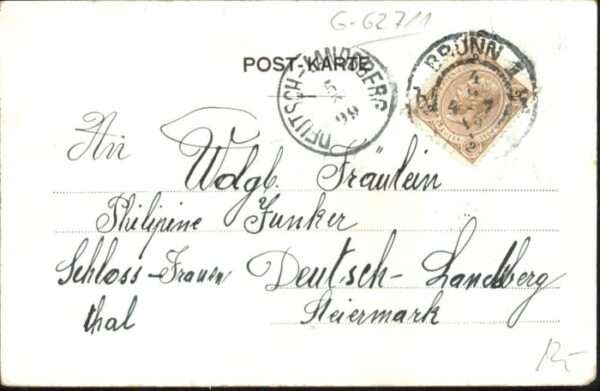 G-G27/1
POST-KARTE
DEUTSCH-LANDSBERG
99
BRÜNN 1
An
Wolgb. Fräulein
Philipine Junker
Schloss-Frauen Deutsch-Landsberg
thal Steiermark